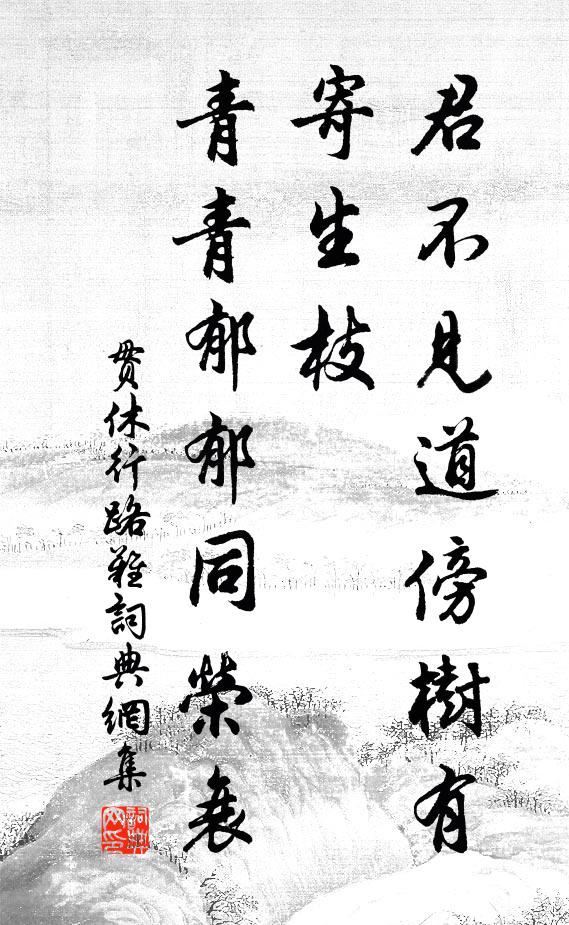 君不見道傍樹有
寄生枝
青青郁郁同榮衰
貫休行路難詞典網集